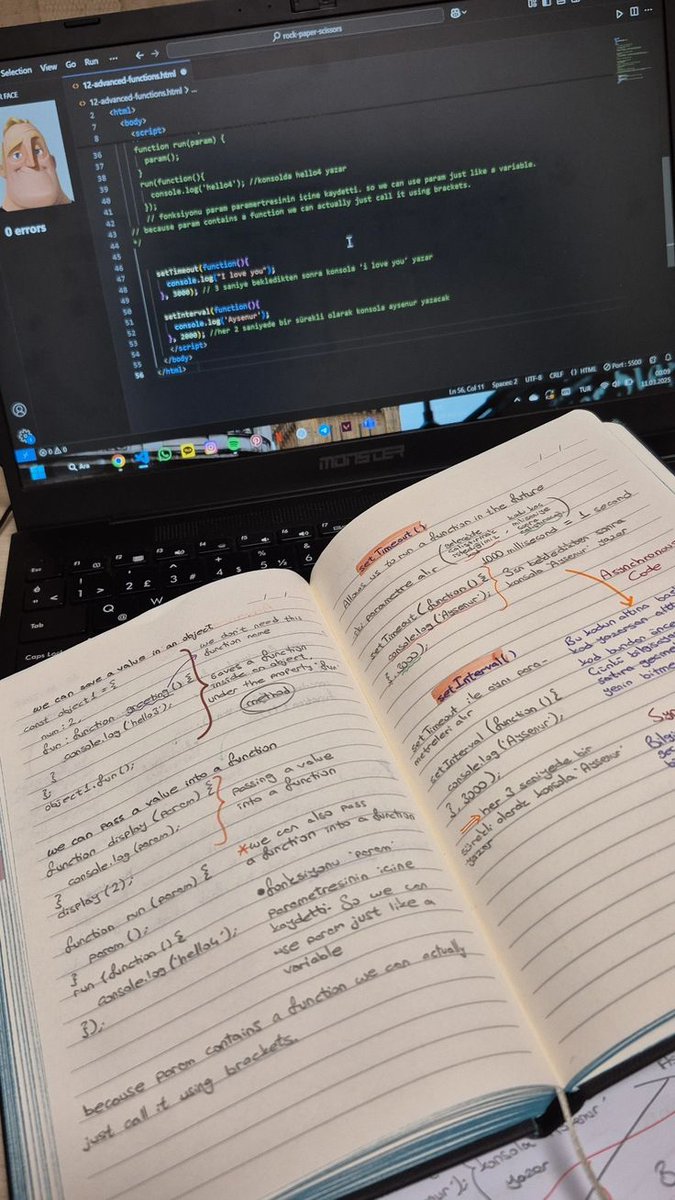 Selection View Go Run ...
rock-paper-scissors
FACE
12-advanced-functions.html
12-advanced-functions.html > ...
2 <html>
7 <body>
8 <script>
36 function run(param) {
37 param();
38 }
39 run(function(){
40 console.log('hello4'); //konsolda hello4 yazar
41 });
42 // fonksiyonu param paramertresinin içine kaydetti. so we can use param just like a variable.
43 // because param contains a function we can actually just call it using brackets.
44 */
45
46 setTimeout(function(){
47 console.log("I love you");
48 }, 3000); // 3 saniye bekledikten sonra konsola 'i love you' yazar
49
50 setInterval(function(){
51 console.log('Aysenur');
52 }, 2000); //her 2 saniyede bir sürekli olarak konsola aysenur yazacak
53 </script>
54 </body>
55 </html>
56
0 errors
Ln 56, Col 11 Spaces: 2 UTF-8 CRLF {} HTML Port : 5500
0 0
Ara
TUR
00:09
11.03.2025
MONSTER
Esc F1 F2 F3 F4
Tab Q W
Caps Lock
we can save a value in an object
const object1 = {
num : 2,
fun : function greeting () {
console.log('hello3');
}
};
object1.fun();
we don't need this
function name
saves a function
inside an object.
under the property 'fun'
method
we can pass a value into a function
function display (param) {
console.log(param);
}
display (2);
passing a value
into a function
*we can also pass
a function into a function
function run (param) {
param ();
}
run (function () {
console.log('hello4');
});
• fonksiyonu 'param'
parametresinin icine
kaydetti. So we can
use param just like a
variable
because param contains a function we can actually
just call it using brackets.
setTimeout()
Allows us to run a function in the future
iki parametre alır
(gelecekte
çalıştırmak
istediğimiz,
kodu kaç
milisaniye
sonra
)
1000 millisecond = 1 second
setTimeout (function () {
console.log('Aysenur');
}, 3000);
3sn bekledikten sonra
konsola 'Aysenur' yazar
Asynchronous
Code
Bu kodun altına
kod yazarsan
kod bundan önce
Çünkü bilgisayar
satıra geçmek
yerin bitme
setInterval()
setTimeout ile aynı para-
metreleri alır
setInterval (function () {
console.log('Aysenur');
}, 3000);
⇒ her 3 saniyede bir
sürekli olarak konsola 'Aysenur'
yazar
konsola 'Aysenur'
yazar